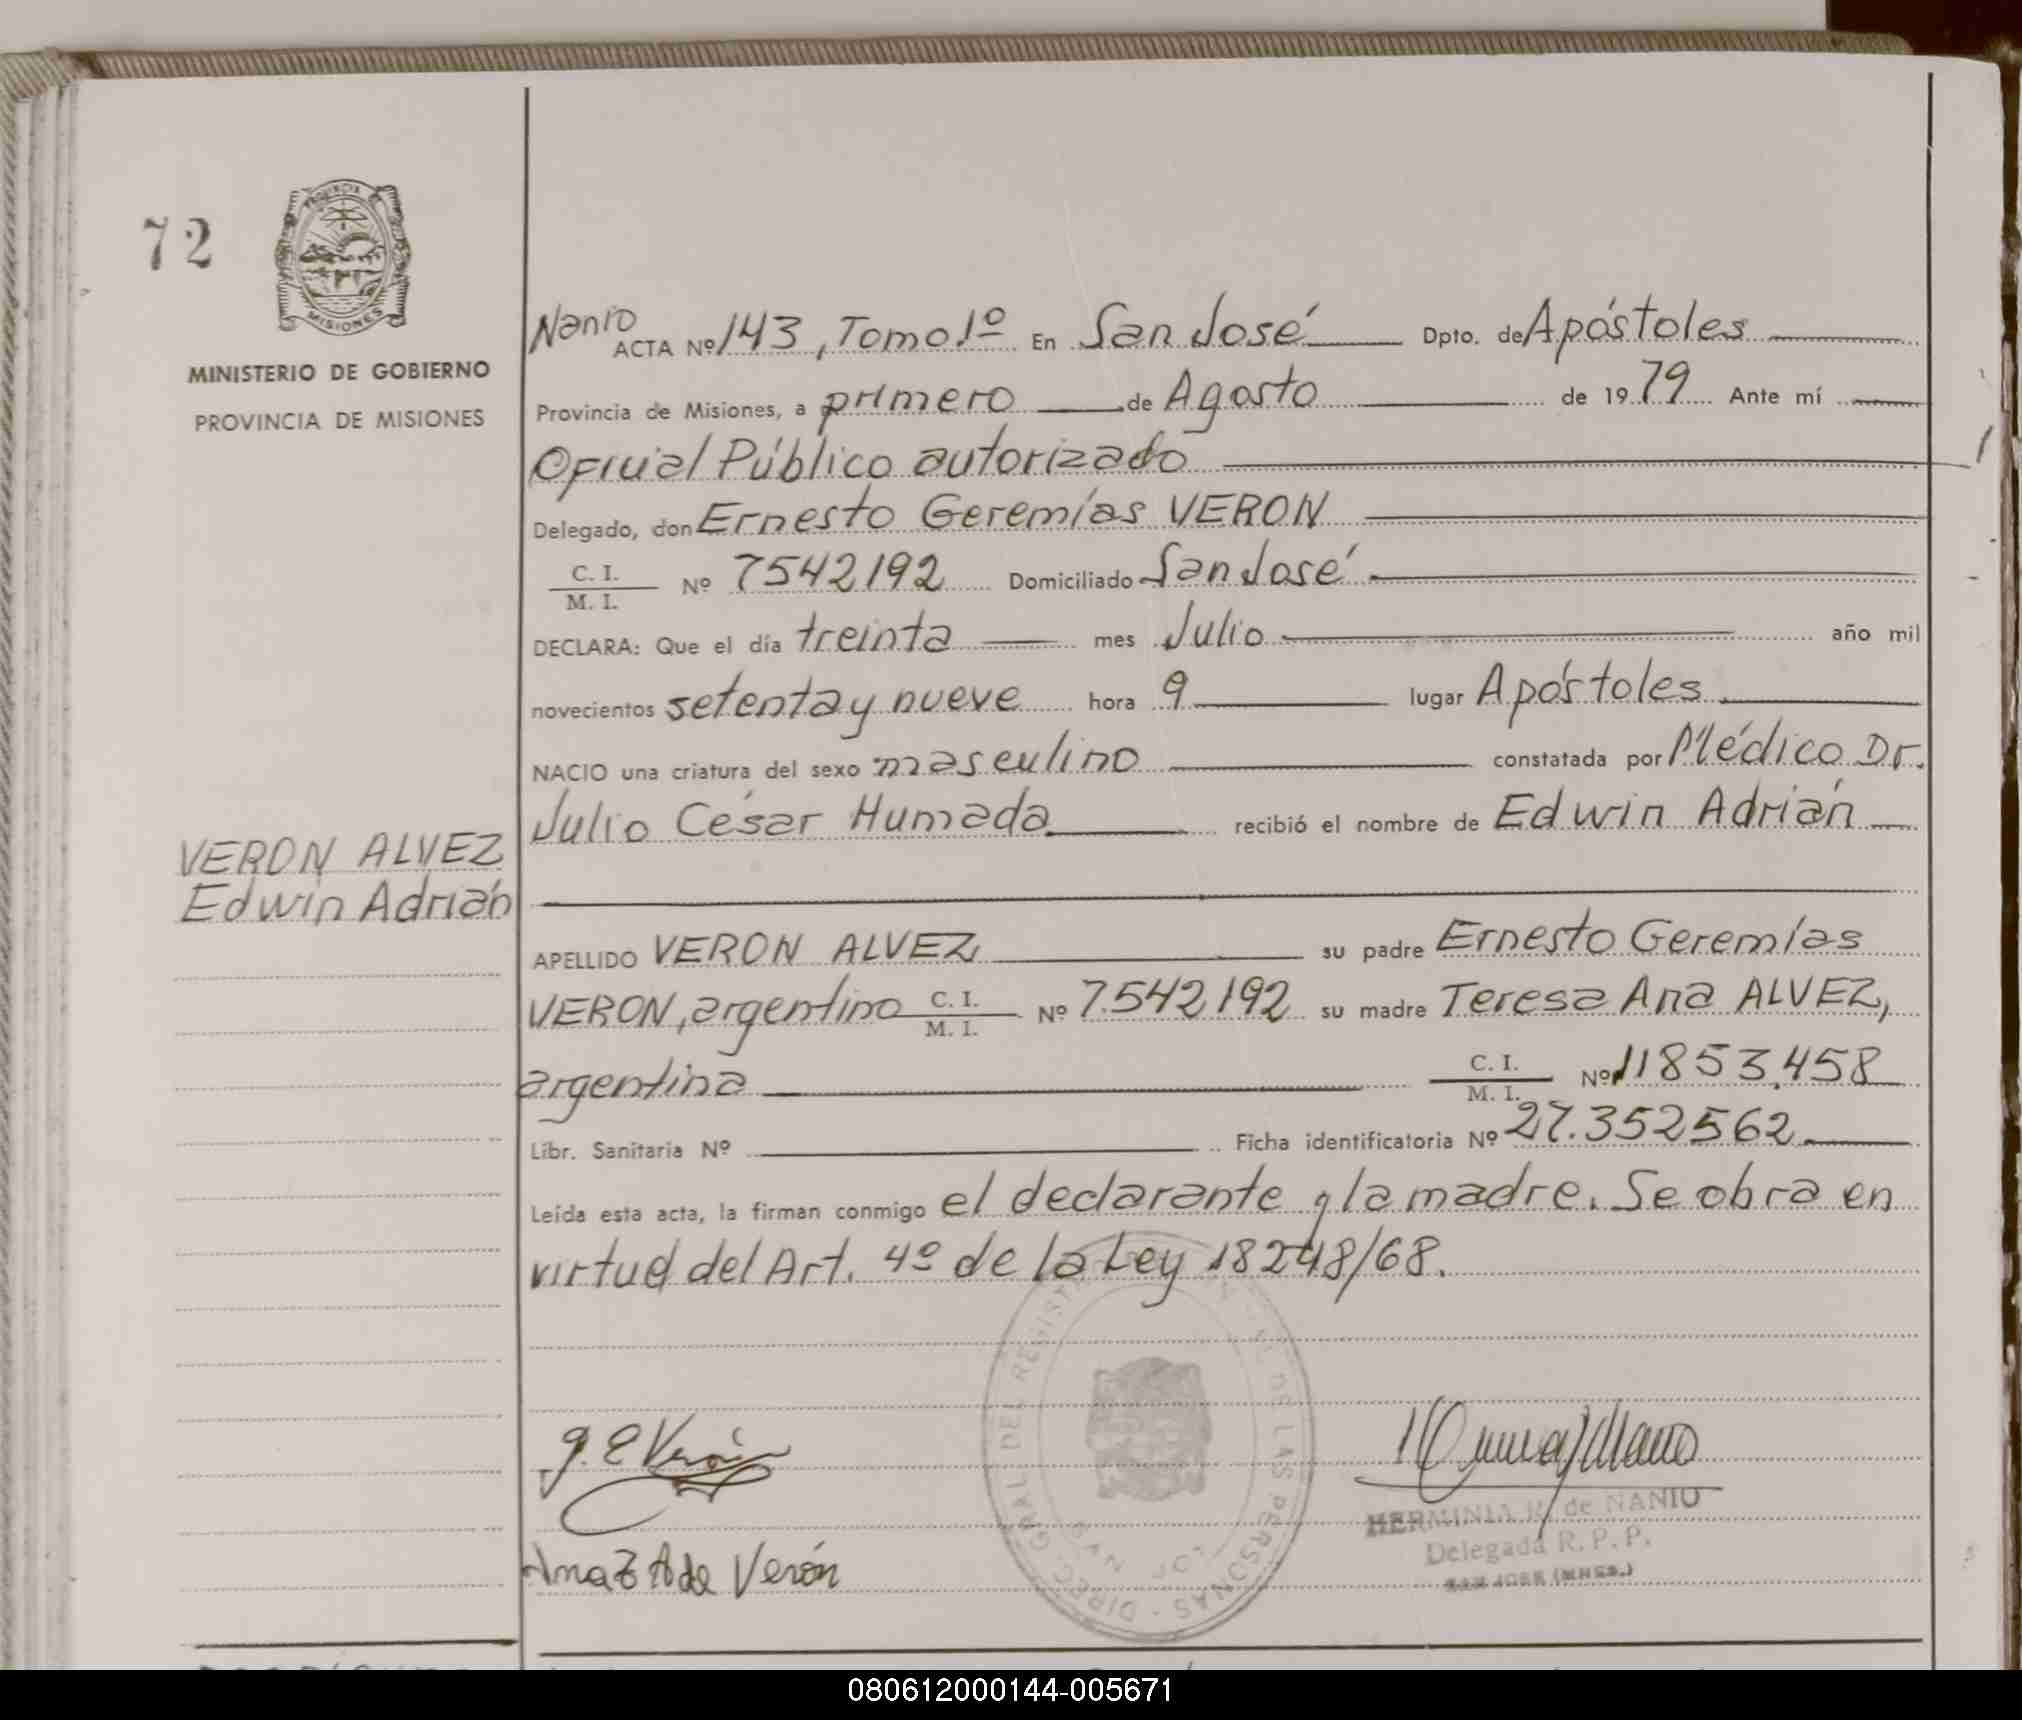 72
PROVINCIA
MISIONES
MINISTERIO DE GOBIERNO
PROVINCIA DE MISIONES
VERON ALVEZ
Edwin Adrián
Nanio
ACTA Nº 143, Tomo 1º En San José Dpto. de Apóstoles
Provincia de Misiones, a primero de Agosto de 1979 Ante mí
Oficial Público autorizado
Delegado, don Ernesto Geremías VERON
C. I.
M. I. Nº 7542192 Domiciliado San José
DECLARA: Que el día treinta mes Julio año mil
novecientos setenta y nueve hora 9 lugar Apóstoles
NACIO una criatura del sexo masculino constatada por Médico Dr.
Julio César Humada recibió el nombre de Edwin Adrián
APELLIDO VERON ALVEZ su padre Ernesto Geremías
VERON, argentino C. I. M. I. Nº 7.542192 su madre Teresa Ana ALVEZ,
argentina C. I. M. I. Nº 11853.458
Libr. Sanitaria Nº Ficha identificatoria Nº 27.352562
Leída esta acta, la firman conmigo el declarante y la madre. Se obra en
virtud del Art. 4º de la Ley 18248/68.
DIREC. GRAL DEL REGIST DE LAS PERSONAS
SAN JO
g. E Verón
HERMINIA R. de NANIO
Delegada R. P. P.
SAN JOSE (MNES.)
Ana T A de Verón
080612000144-005671